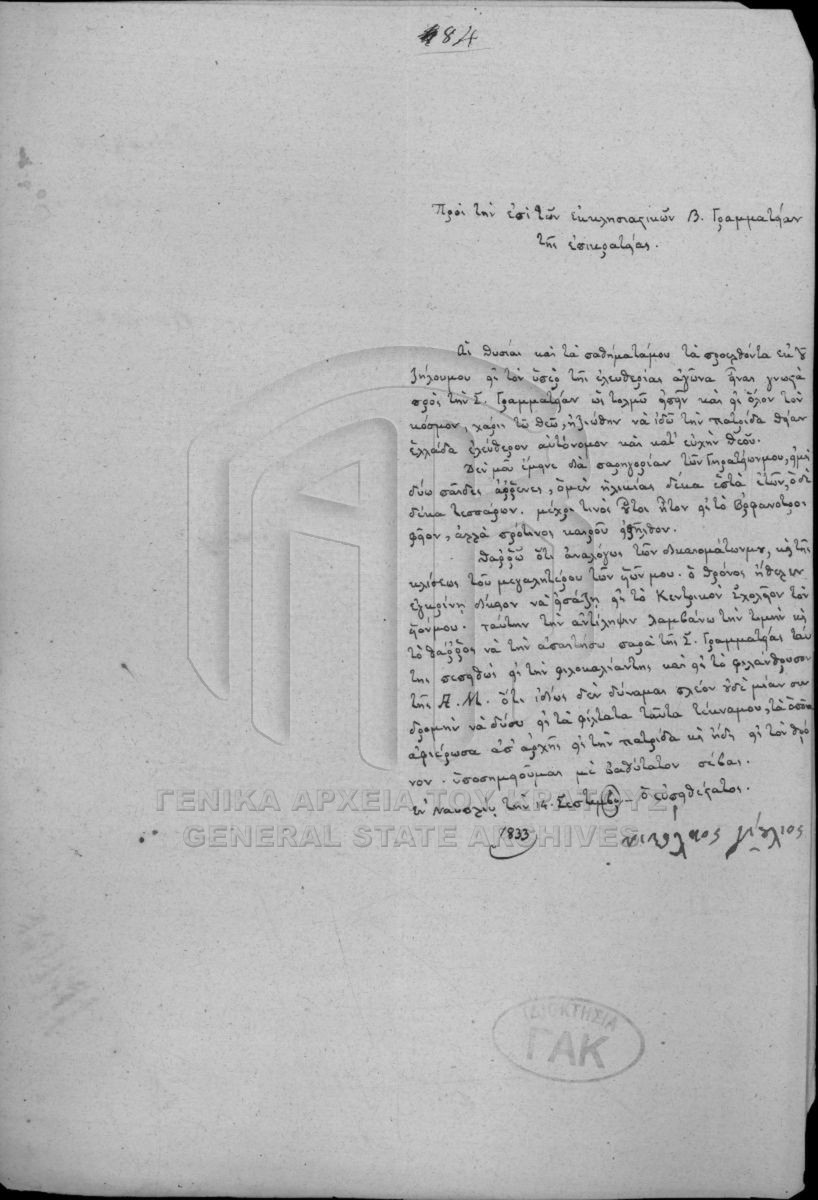 184
Πρὸς τὴν ἐπὶ τῶν ἐκκλησιαςικῶν Β. Γραμματείαν
τῆς ἐπικρατείας.
Αἱ θυσίαι καὶ τὰ παθήματάμου τὰ προελθόντα ἐκ τοῦ
ζήλουμου εἰς τὸν ὑπὲρ τῆς ἐλευθερίας ἀγῶνα εἶναι γνωςὰ
πρὸς τὴν Σ. Γραμματείαν ὡς τολμῶ εἰπεῖν καὶ εἰς ὅλον τὸν
κόσμον, χάρις τῷ θεῷ, ἠξιώθην νὰ ἰδῶ τὴν πατρίδα θείαν
ἑλλάδα ἐλεύθερον αὐτόνομον καὶ κατ' εὐχὴν θεοῦ.
Δὲν μοῦ ἔμεινε διὰ παρηγορίαν τῶν Γηρατείωνμου, εἰμὴ
δύω παῖδες ἄῤῥενες, ὁ μὲν ἡλικίας δέκα ἑπτὰ ἐτῶν, ὁ δὲ
δέκα τεσσάρων. μέχρι τινὸς οὗτοι ἦτον εἰς τὸ Ὀρφανοτρο
φεῖον, ἀλλὰ πρότινος καιροῦ ἐξῆλθον.
Θαῤῥῶ ὅτι ἀναλόγως τῶν δικαιομάτωνμου, καὶ τῆς
κλίσεως τοῦ μεγαλητέρου τῶν υἱῶν μου. ὁ θρόνος ἤθελεν
ἐγκρίνῃ δίκαιον νὰ εἰσάξῃ εἰς τὸ Κεντρικὸν Σχολεῖον τὸν
υἱόνμου. ταύτην τὴν ἀντίληψιν λαμβάνω τὴν τιμὴν καὶ
τὸ θάῤῥος νὰ τὴν ἀπαιτήσω παρὰ τῆς Σ. Γραμματείας ταύ
της πεποιθὼς εἰς τὴν φιλοκαλίαντης καὶ εἰς τὸ φιλάνθρωπον
τῆς Α. Μ. ὅτι ἰδίως δὲν δύναμαι πλέον οὐδὲ μίαν συν
δρομὴν νὰ δώσω εἰς τὰ φίλτατα ταῦτα τέκναμου, τὰ ὁποῖα
ἀφιέρωσα ἀπ' ἀρχῆς εἰς τὴν πατρίδα καὶ ἤδη εἰς τὸν θρό
νον. ὑποσημειοῦμαι μὲ βαθύτατον σέβας.
ἐν Ναυπλίῳ τὴν 14 Σεπτεμβρ ὁ εὐπειθέςατος.
1833
νικόλαος
ΓΕΝΙΚΑ ΑΡΧΕΙΑ ΤΟΥ ΚΡΑΤΟΥΣ
GENERAL STATE ARCHIVES
ΙΔΙΟΚΤΗΣΙΑ
ΓΑΚ